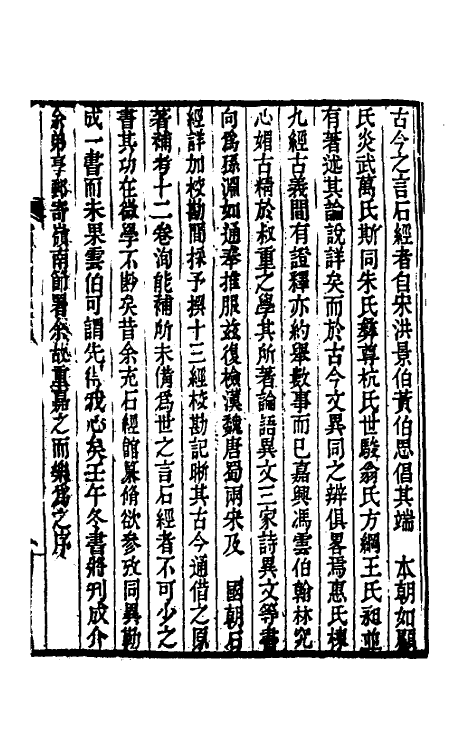 古今之言石經者自宋洪景伯黃伯思倡其端　本朝如顧
氏炎武萬氏斯同朱氏彝尊杭氏世駿翁氏方綱王氏昶並
有著述其論說詳矣而於古今文異同之辨俱畧焉惠氏棟
九經古義間有證釋亦約舉數事而已嘉興馮雲伯翰林究
心媚古精於叔重之學其所著論語異文三家詩異文等書
向為孫淵如通奉推服兹復檢漢魏唐蜀兩宋及　國朝石
經詳加校勘間採予撰十三經校勘記晰其古今通借之原
著補考十二卷洵能補所未備為世之言石經者不可少之
書其功在微學不尠矣昔余充石經館纂脩欲參攷同異勒
成一書而未果雲伯可謂先得我心矣壬午冬書將刋成介
余弟亨郵寄嶺南節署余故重嘉之而樂為之序